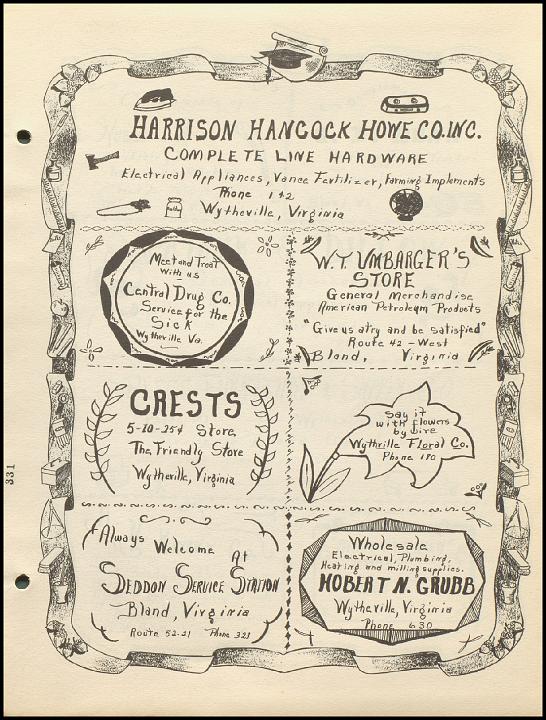 HARRISON HANCOCK HOWE CO. INC.
COMPLETE LINE HARDWARE
Electrical Appliances, Vance Fertilizer, Farming Implements
Phone 142
Wytheville, Virginia
Meet and Treat
With us
Central Drug Co.
Service for the
Sick
Wytheville Va.
W.Y. UMBARGER'S
STORE
General Merchandise
American Petroleum Products
"Give us a try and be satisfied"
Route 42 - West
Bland, Virginia
CRESTS
5-10-25¢ Store
The Friendly Store
Wytheville, Virginia
Say it
with flowers
by wire
Wythville Floral Co.
Phone 180
Always
Welcome
At
SEDDON SERVICE STATION
Bland, Virginia
Route 52-21 Phone 321
Wholesale
Electrical, Plumbing,
Heating and milling supplies.
HOBERT N. GRUBB
Wytheville, Virginia
Phone 630
331